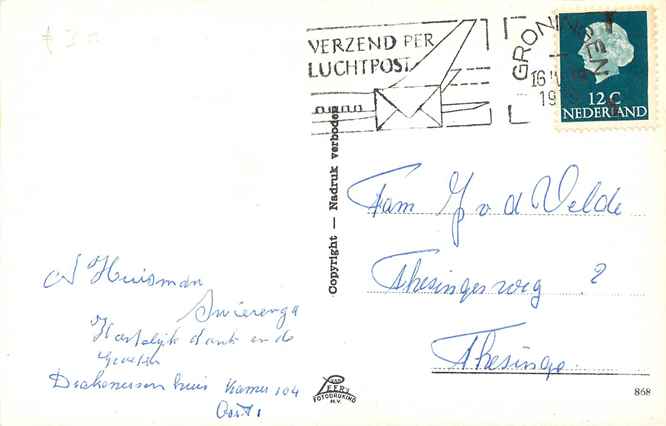 VERZEND PER
LUCHTPOST
GRONINGEN
16
19
12 C
NEDERLAND
Copyright — Nadruk verboden
Fam Y v d Velde
Thesingerweg 2
Thesinge
N Huisman
Swierenga
Hartelijk dank en de
Groeten
Diakonessen huis Kamer 104
Oost 1
VAN LEER'S
FOTODRUKIND
N.V.
868